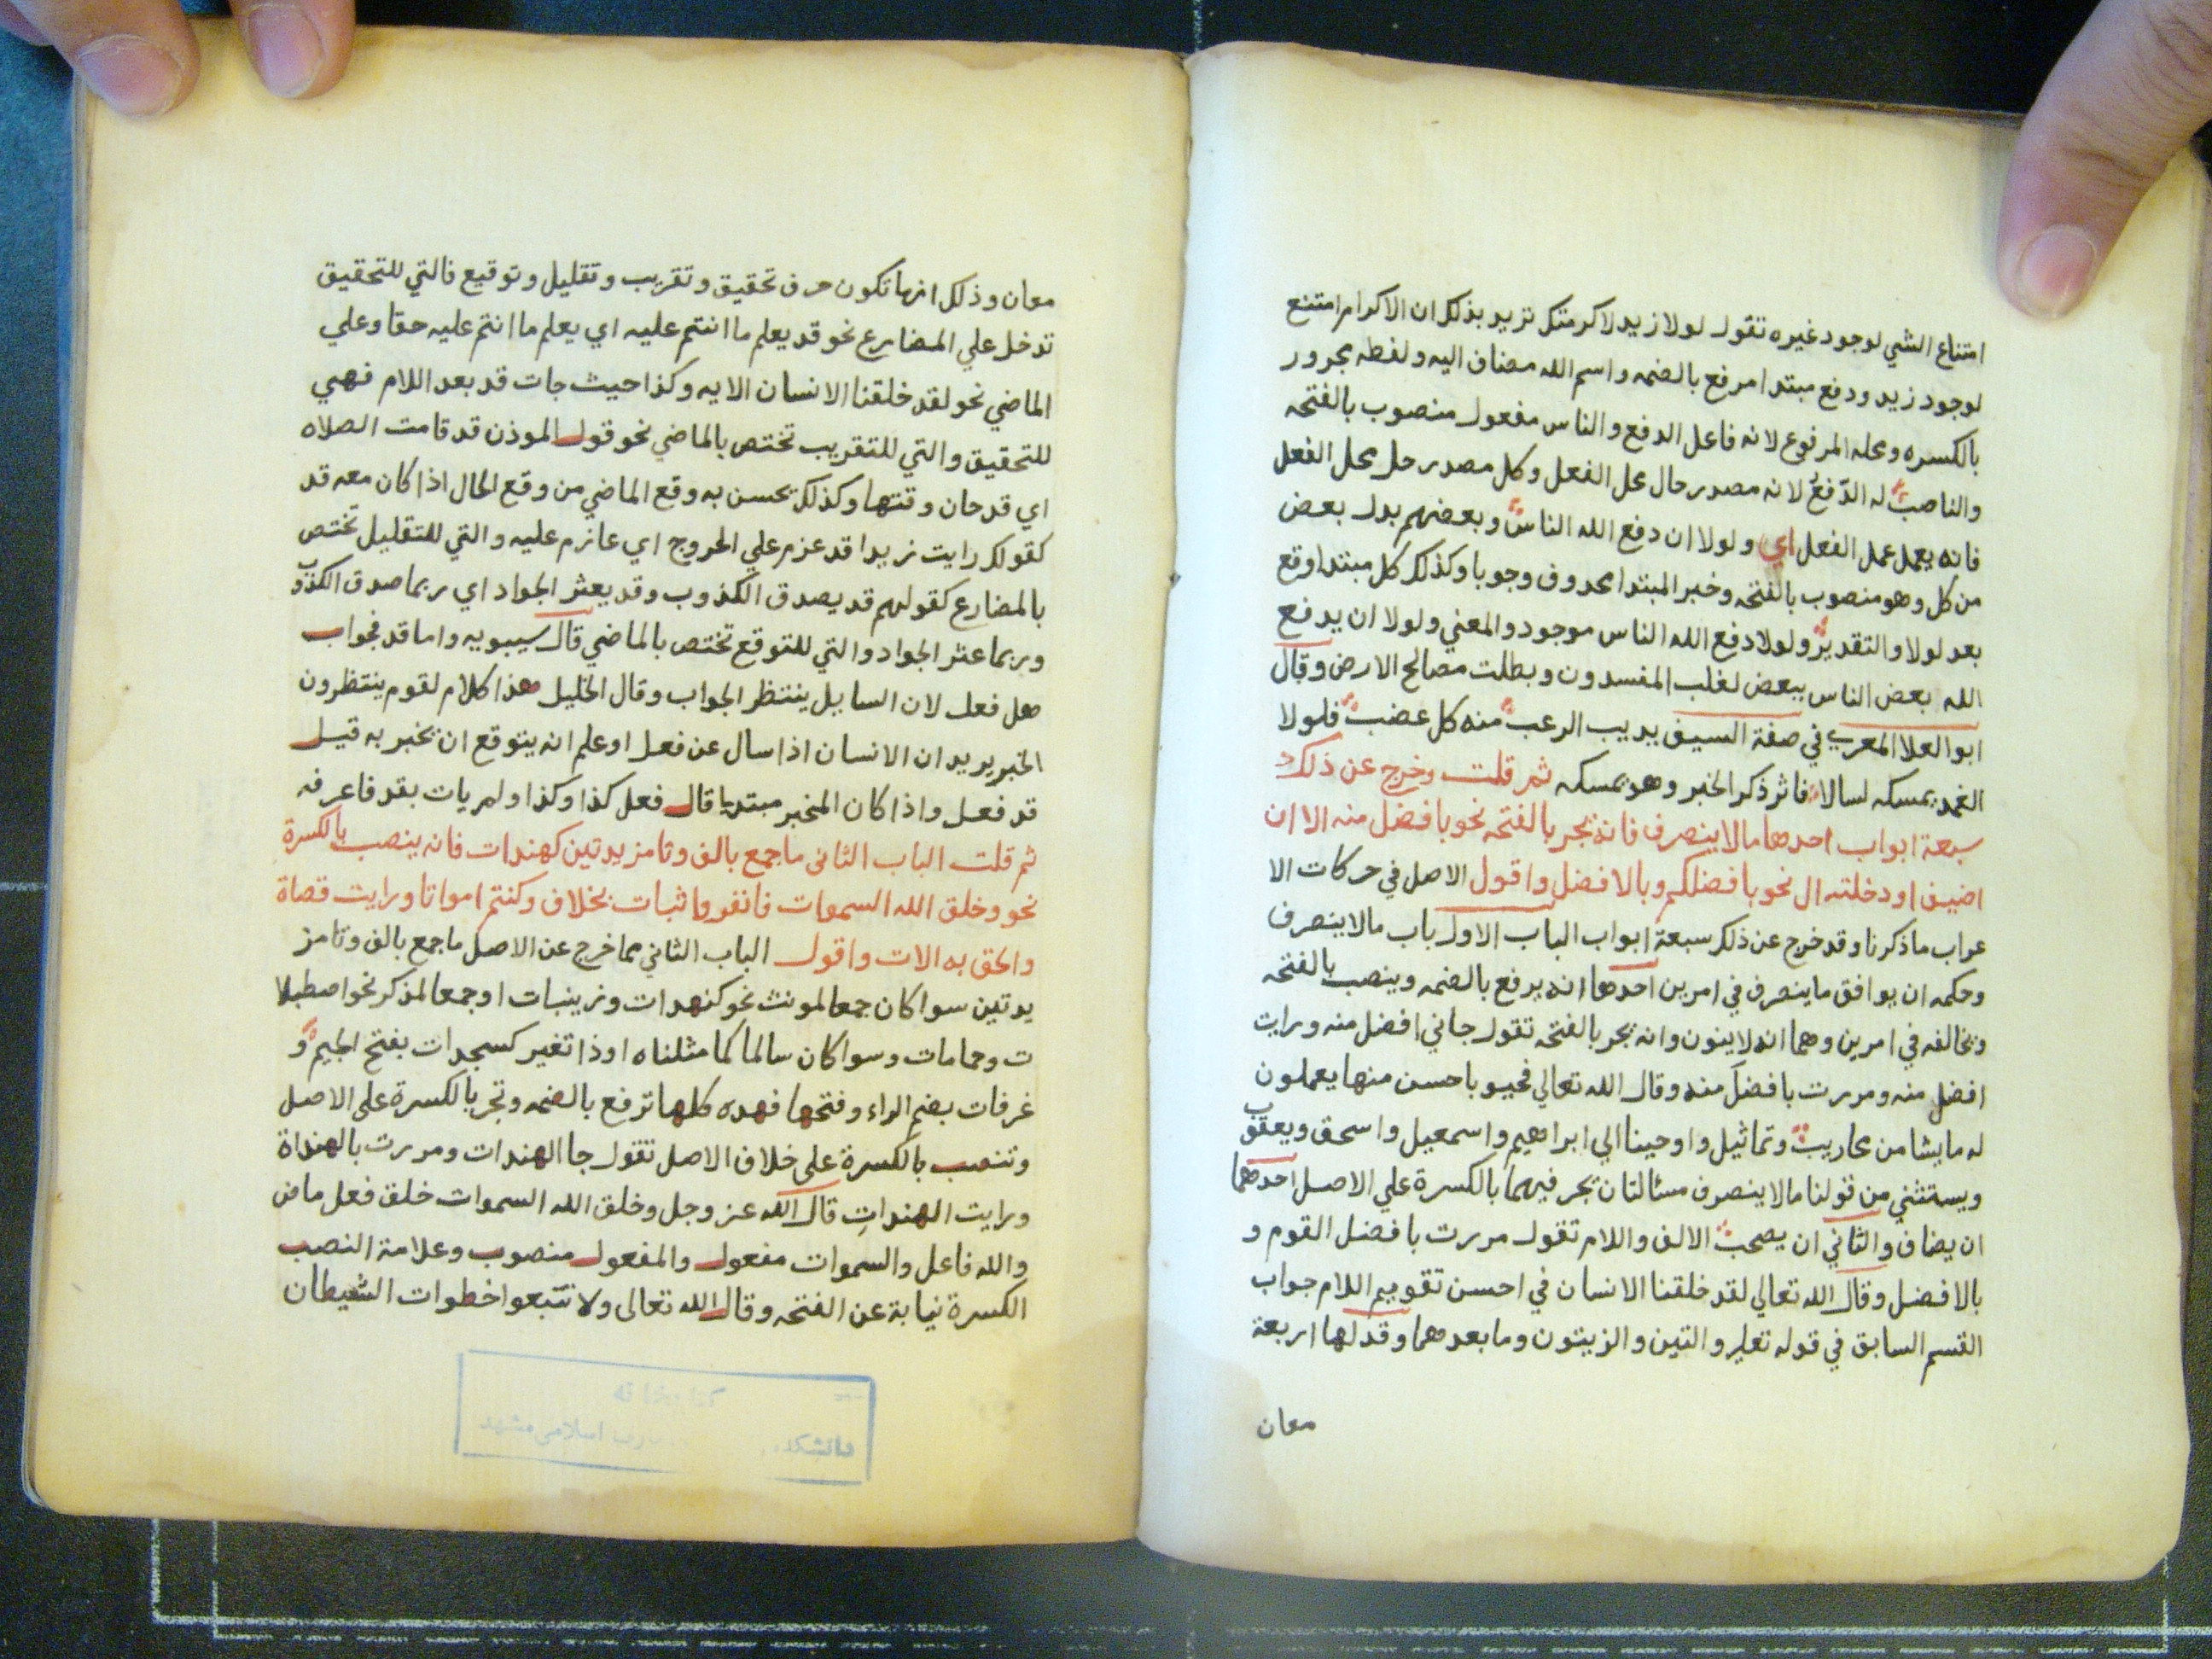 امتناع الشي لوجود غيره تقول لولا زيد لاكرمتك تريد بذلك ان الاكرام امتنع
لوجود زيد ودفع مبتدا مرفع بالضمه واسم الله مضاف اليه ولفظه مجرور
بالكسره ومحله المرفوع لانه فاعل الدفع والناس مفعول منصوب بالفتحه
والناصب له الدّفع لانه مصدر حال محل الفعل وكل مصدر حل محل الفعل
فانه يعمل عمل الفعل اي ولولا ان دفع الله الناس وبعضهم بدل بعض
من كل وهو منصوب بالفتحه وخبر المبتدا محدوف وجوبا وكذلك كل مبتدا وقع
بعد لولا والتقدير ولولا دفع الله الناس موجود والمعني ولولا ان يدفع
الله بعض الناس ببعض لغلب المفسدون وبطلت مصالح الارض وقال
ابو العلا المعري في صفة السيف يديب الرعب منه كل عضب فلولا
الغمد يمسكه لسالا فاثر ذكر الخبر وهو يمسكه ثم قلت وخرج عن ذلك
سبعة ابواب احدها مالا ينصرف فانه يجر بالفتحه نحو بافضل منه الا ان
اضيف او دخلته ال نحو بافضلكم وبالافضل واقول الاصل في حركات الا
عراب ماذكرنا وقد خرج عن ذلك سبعة ابواب الباب الاول باب مالا ينصرف
وحكمه ان يوافق ما ينصرف في امرين احدها انه يرفع بالضمه وينصب بالفتحه
ويخالفه في امرين وهما انه لا ينون وانه يجر بالفتحه تقول جاني افضل منه ورايت
افضل منه ومررت بافضلَ منه وقال الله تعالي فحيو باحسن منها يعملون
له مايشا من محاريب وتماثيل واوحينا الي ابراهيم واسمعيل واسحق ويعقوب
ويستثني من قولنا مالا ينصرف مسئالتان يجر فيهما بالكسرة علي الاصل احدهما
ان يضاف والثاني ان يصحب الالف واللام تقول مررت بافضل القوم و
بالافضل وقال الله تعالي لقد خلقنا الانسان في احسن تقويم اللام جواب
القسم السابق في قوله تعلي والتين والزيتون وما بعدهما وقد لها اربعة
معان
معان وذلك انها تكون حرف تحقيق وتقريب وتقليل وتوقيع فالتي للتحقيق
تدخل علي المضارع نحو قد يعلم ما انتم عليه اي يعلم ما انتم عليه حقا وعلي
الماضي نحو لقد خلقنا الانسان الايه وكذا حيث جات قد بعد اللام فهي
للتحقيق والتي للتقريب تختص بالماضي نحو قول الموذن قد قامت الصلاه
اي قد حان وقتها وكذلك يحسن به وقع الماضي من وقع الحال اذا كان معه قد
كقولك رايت زيدا قد عزم علي الخروج اي عازم عليه والتي للتقليل تختص
بالمضارع كقولهم قد يصدق الكذوب وقد يعثر الجواد اي ربما صدق الكذوب
وربما عثر الجواد والتي للتوقع تختص بالماضي قال سيبويه واما قد فجواب
هل فعل لان السايل ينتظر الجواب وقال الخليل هذا كلام لقوم ينتظرون
الخبر يريد ان الانسان اذا سال عن فعل او علم انه يتوقع ان يخبر به قيل
قد فعل واذا كان المخبر مبتديا قال فعل كذا وكذا ولم يات بقد فاعرفه
ثم قلت الباب الثانى ما جمع بالف وتا مزيدتين كهندات فانه ينصب بالكسرة
نحو وخلق الله السموات فانفروا ثبات بخلاف وكنتم امواتا ورايت قصاة
والحق به الات واقول الباب الثاني مما خرج عن الاصل ما جمع بالف وتا مز
يدتين سوا كان جمعا لمونث نحو كنهدات وزينبات او جمعا لمذكر نحو اصطبلا
ت وحمامات وسوا كان سالما كما مثلناه او ذا تغير كسجدات بفتح الجيم و
غرفات بضم الراء وفتحها فهده كلها ترفع بالضمه وتجر بالكسرة على الاصل
وتنصب بالكسرة على خلاف الاصل تقول جا الهندات ومررت بالهنداة
ورايت الهنداتِ قال الله عز وجل وخلق الله السموات خلق فعل ماض
والله فاعل والسموات مفعول والمفعول منصوب وعلامة النصب
الكسرة نيابة عن الفتحه وقال الله تعالى ولا تتبعوا خطوات الشيطان
دانشكده
اسلامى مشهد